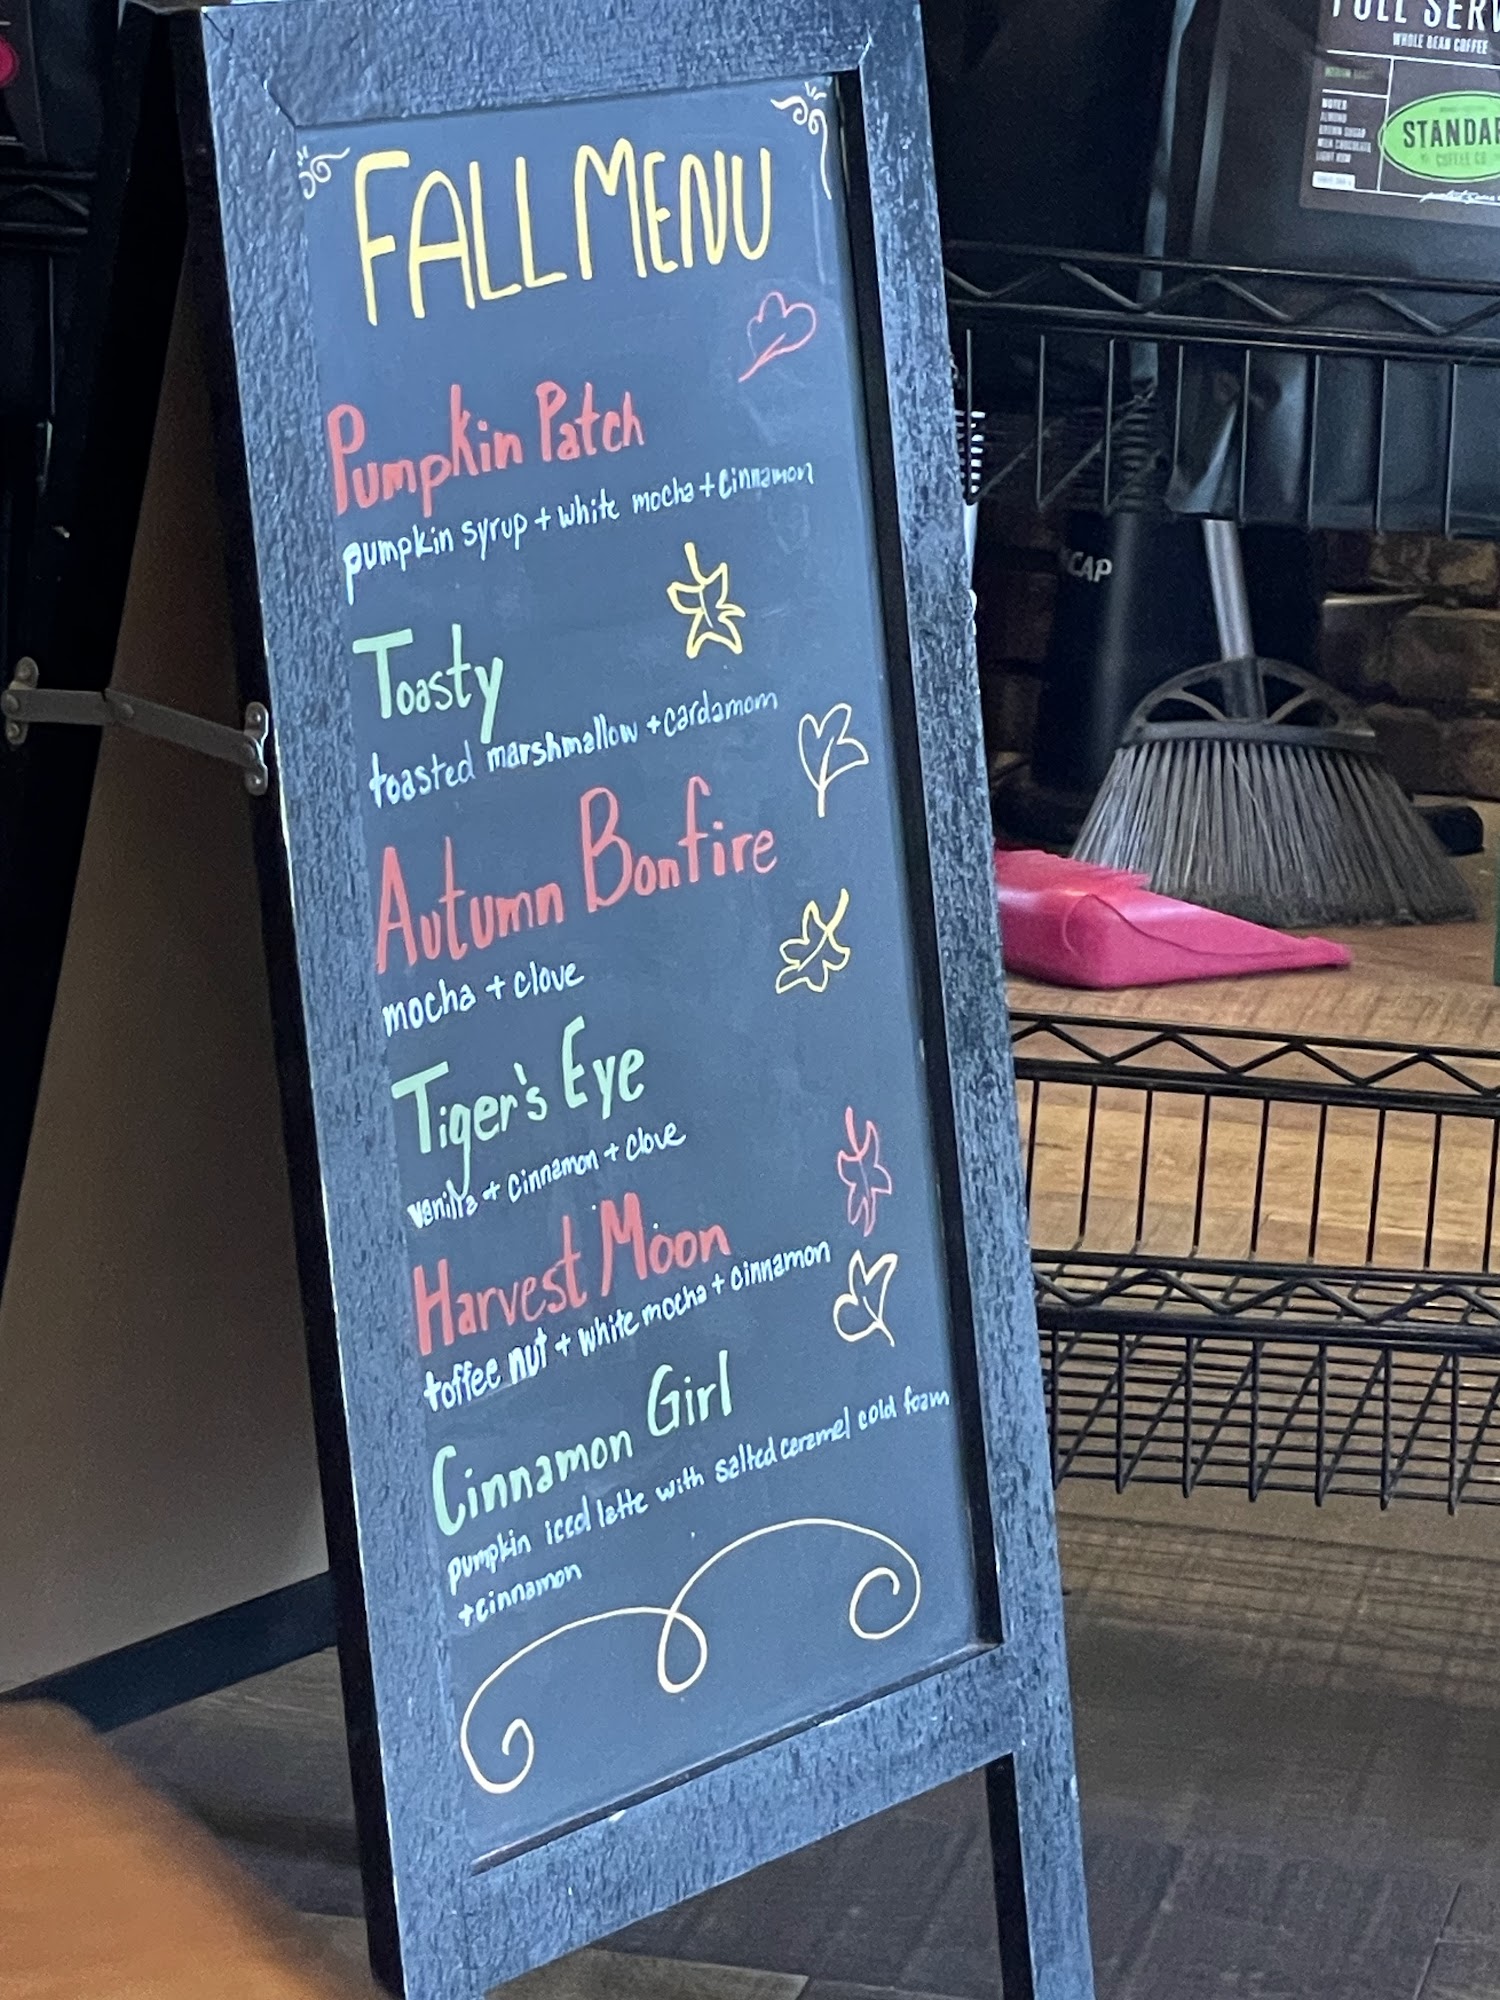 FALL MENU
Pumpkin Patch
pumpkin syrup + white mocha + cinnamon
Toasty
toasted marshmallow + cardamom
Autumn Bonfire
mocha + clove
Tiger's Eye
vanilla + cinnamon + clove
Harvest Moon
toffee nut + white mocha + cinnamon
Cinnamon Girl
pumpkin iced latte with salted caramel cold foam
+ cinnamon
FULL SERV
WHOLE BEAN COFFEE
MEDIUM ROAST
NOTES
ALMOND
BROWN SUGAR
MILK CHOCOLATE
LIGHT RUM
STANDAR
COFFEE CO
CAP